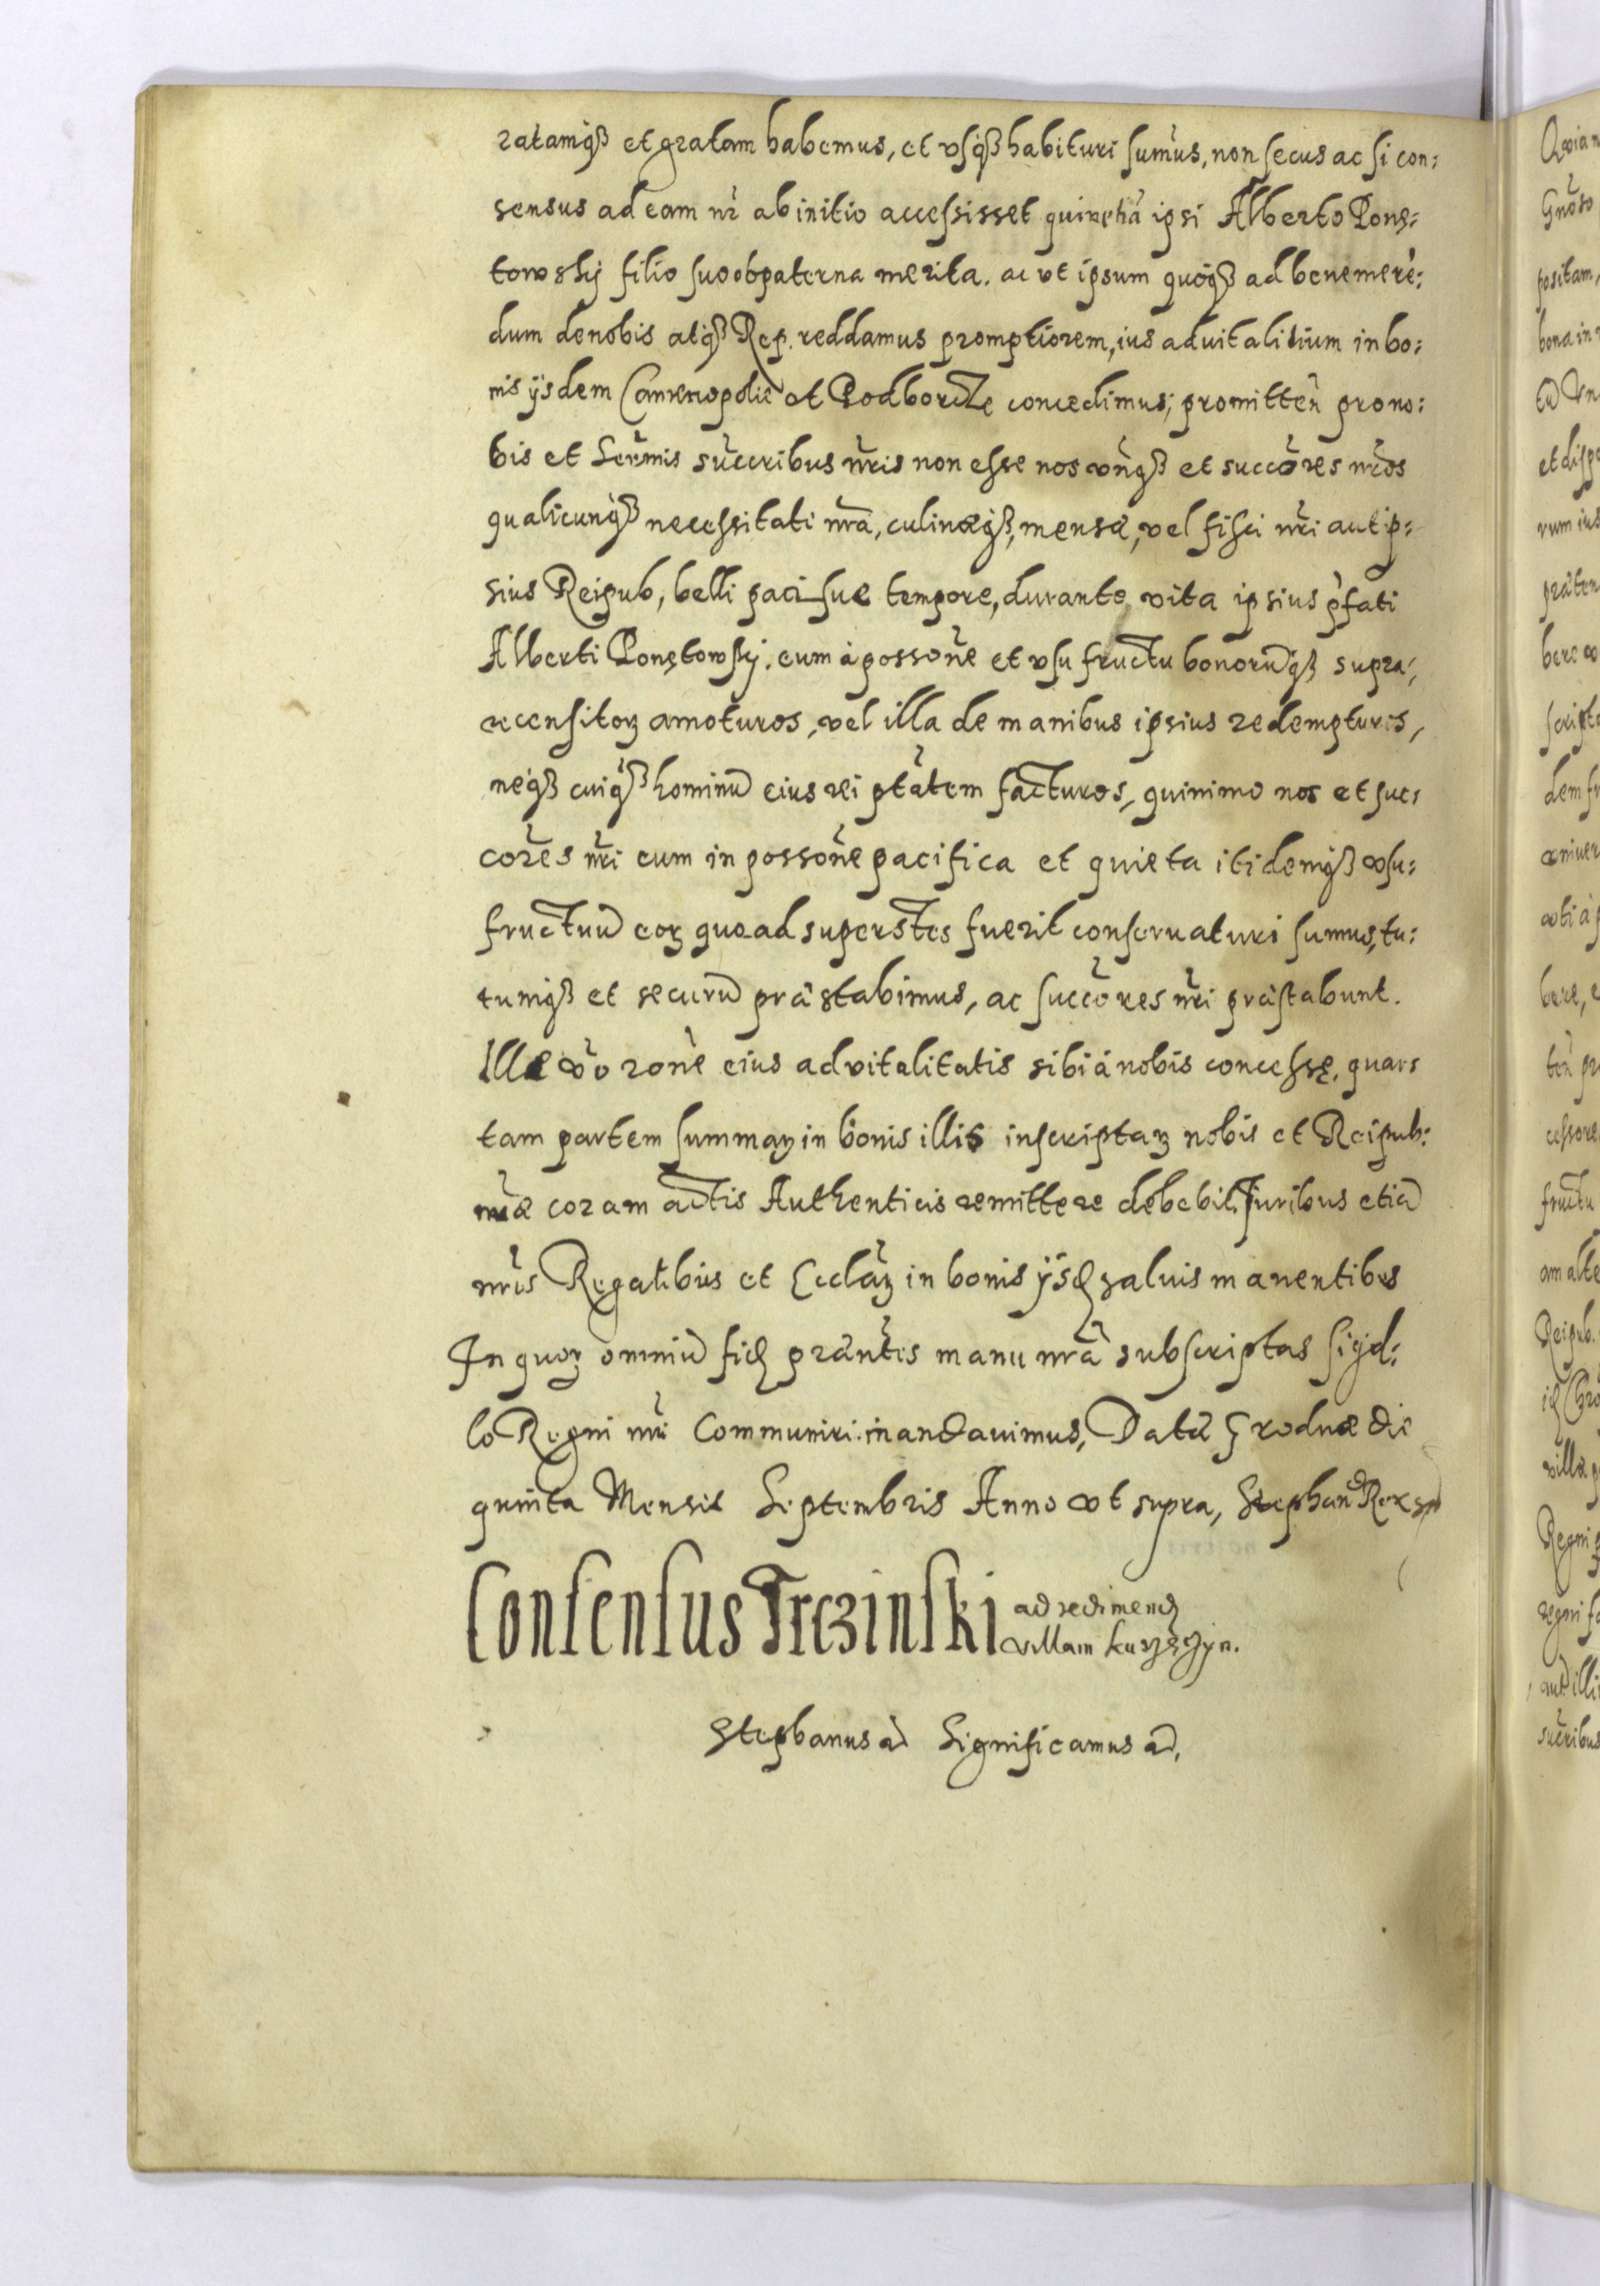 ratamq₃ et gratam habemus, et vsq₃ habituri sumus, non secus ac si con:
sensus ad eam nr̃ ab initio accessisset quin etiā ipsi Alberto Pons:
towskij filio suo ob paterna merita. ac vt ipsum quoq₃ ad benemerē:
dum de nobis atq₃ Rep. reddamus promptiorem, ius aduitalitium in bo:
nis ijsdem et Podborcze concedimus; promitteñ pro no:
bis et Serm̃is succr̃ibus nr̃is non esse nos vnq̃₃ et succõres nr̃os
qualicunq₃ necessitati nr̃a, culinæq₃, mensæ, vel fisci nr̃i aut ip:
sius Reipub, belli pacisue tempore, durante vita ipsius p̃fati
Alberti Ponętowskj. eum à possoñe et vsu fructu bonorũq₃ supra,
recensitoꝝ amoturos, vel illa de manibus ipsius redempturos,
neq₃ cuiq₃ hominũ eius rei ptãtem facturos, quinimo nos et suc:
cor̃es nr̃i eum in possoñe pacifica et quieta itidemq₃ vsu:
fructuũ eoꝝ quoad superstes fuerit conseruaturi sumus, tu:
tumq₃ et securũ præstabimus, ac succõres nr̃i præstabunt.
Ille vo᷈ rone᷈ eius advitalitatis sibi à nobis concessę, quar:
tam partem summaꝝ in bonis illis inscriptaꝝ nobis et Reipub:
nr̃æ coram actis Authenticis remittere debebit. Juribus etiã
nr̃is Regalibus et Ecclãꝝ in bonis ijsd̨ saluis manentibus
In quoꝝ omniũ fid̨ præntes manu nr̃a subscriptas sigil:
lo Regni nr̃i Communiri mandauimus, Datæ Grodnæ die
quinta Mensis Septembris Anno vt supra, Stephanꝰ Rex sp̃
Consensus Trczinski ad redimend̨
villam
Stephanus ã Significamus ã,